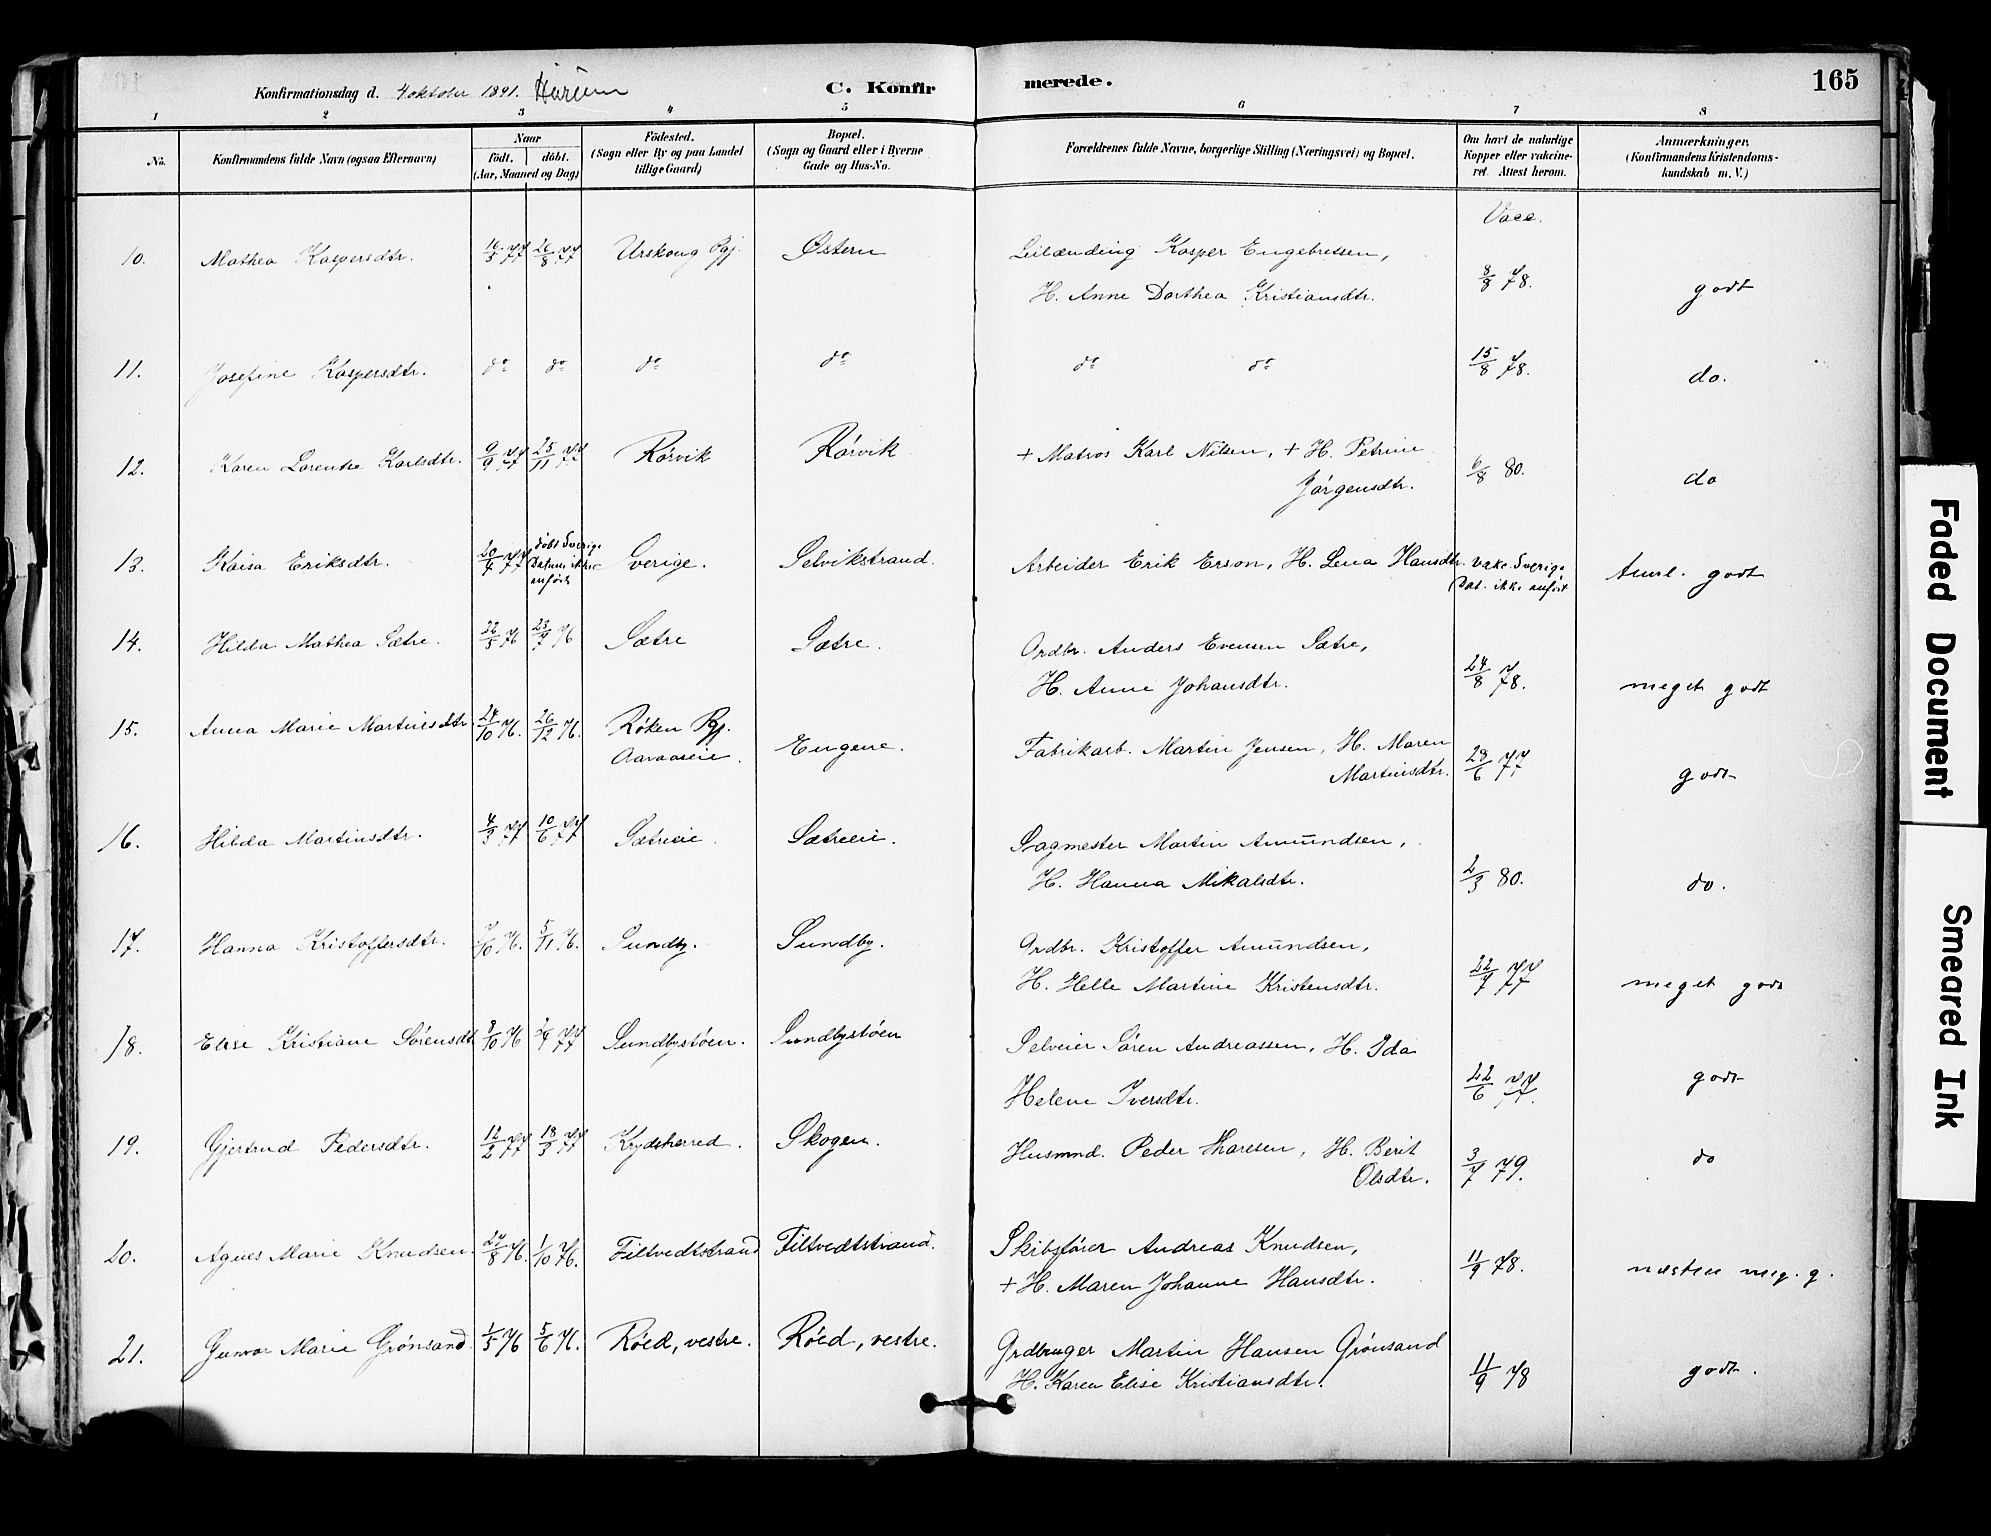 Konfirmationsdag d. 4 oktober 1891. Hurum C. Konfirmerede. 165
1 2 3 4 5 6 7 8
No. Konfirmandens fulde Navn (ogsaa Efternavn) Naar födt. döbt. (Aar, Maaned og Dag) Födested. (Sogn eller By og paa Landet tillige Gaard) Bopæl. (Sogn og Gaard eller i Byerne Gade og Hus-No. Forældrenes fulde Navne, borgerlige Stilling (Næringsvei) og Bopæl. Om havt de naturlige Kopper eller vakcineret. Attest herom. Anmærkninger. (Konfirmandens Kristendomskundskab m. V.)
Vacc.
10. Mathea Kaspersdtr. 16/5 77 26/8 77 Urskoug Pgj. Østern Leilænding Kasper Engebretsen,
H. Anne Dorthea Kristiansdtr. 8/8 78. godt
11. Josefine Kaspersdtr. do do do do do do 15/8 78. do.
12. Karen Lorentse Karlsdtr. 9/9 77 25/11 77 Rórvik Rórvik + Matros Karl Nilsen, + H. Petrine
Jörgensdtr. 6/8 80. do
13. Kaisa Eriksdtr. 20/4 77 döbt Sverige Datum ikke anfört Sverige. Selvikstrand. Arbeider Erik Erson, H. Lena Hansdtr. vakc. Sverige
Dat. ikke anfört godt
14. Hilda Mathea Sætre. 22/5 76 23/7 76 Sætre Sætre. Grdbr. Anders Evensen Sætre,
H. Anne Johansdtr. 24/8 78. meget godt
15. Anna Marie Martinsdtr. 24/10 76. 26/12 76. Röken Pgj. Aaraaseie. Engene. Fabrikarb. Martin Jensen, H. Maren
Martinsdtr. 28/6 77 godt
16. Hilda Martinsdtr. 4/3 77 10/6 77 Sætreeie. Sætreeie. Sagmester Martin Amundsen,
H. Hanna Mikalsdtr. 2/3 80. do.
17. Hanna Kristoffersdtr. 7/10 76. 5/11 76. Sundby. Sundby. Grdbr. Kristoffer Amundsen,
H. Helle Martine Kristensdtr. 22/7 77 meget godt
18. Elise Kristiane Sörensdtr 3/10 76 2/4 77 Sundbystöen. Sundbystöen Selveier Sören Andreassen, H. Ida
Helene Iversdtr. 22/6 77. godt
19. Gjertrud Pedersdtr. 12/2 77 18/3 77 Krydsherred. Skogen. Husmnd. Peder Tharesen, H. Berit
Olsdtr. 3/7 79. do
20. Agnes Marie Knudsen. 27/8 76. 1/10 76. Filtvedtstrand Filtvedtstrand. Skibsfører Andreas Knudsen,
+ H. Maren Johanne Hansdtr. 11/9 78. næsten meg. g.
21. Gunvor Marie Grönsand. 1/5 76 5/6 76. Röed, vestre. Röed, vestre. Grdbruger Martin Hansen Grönsand
H. Karen Elise Kristiansdtr. 11/9 78 godt.
Faded Document
Smeared Ink